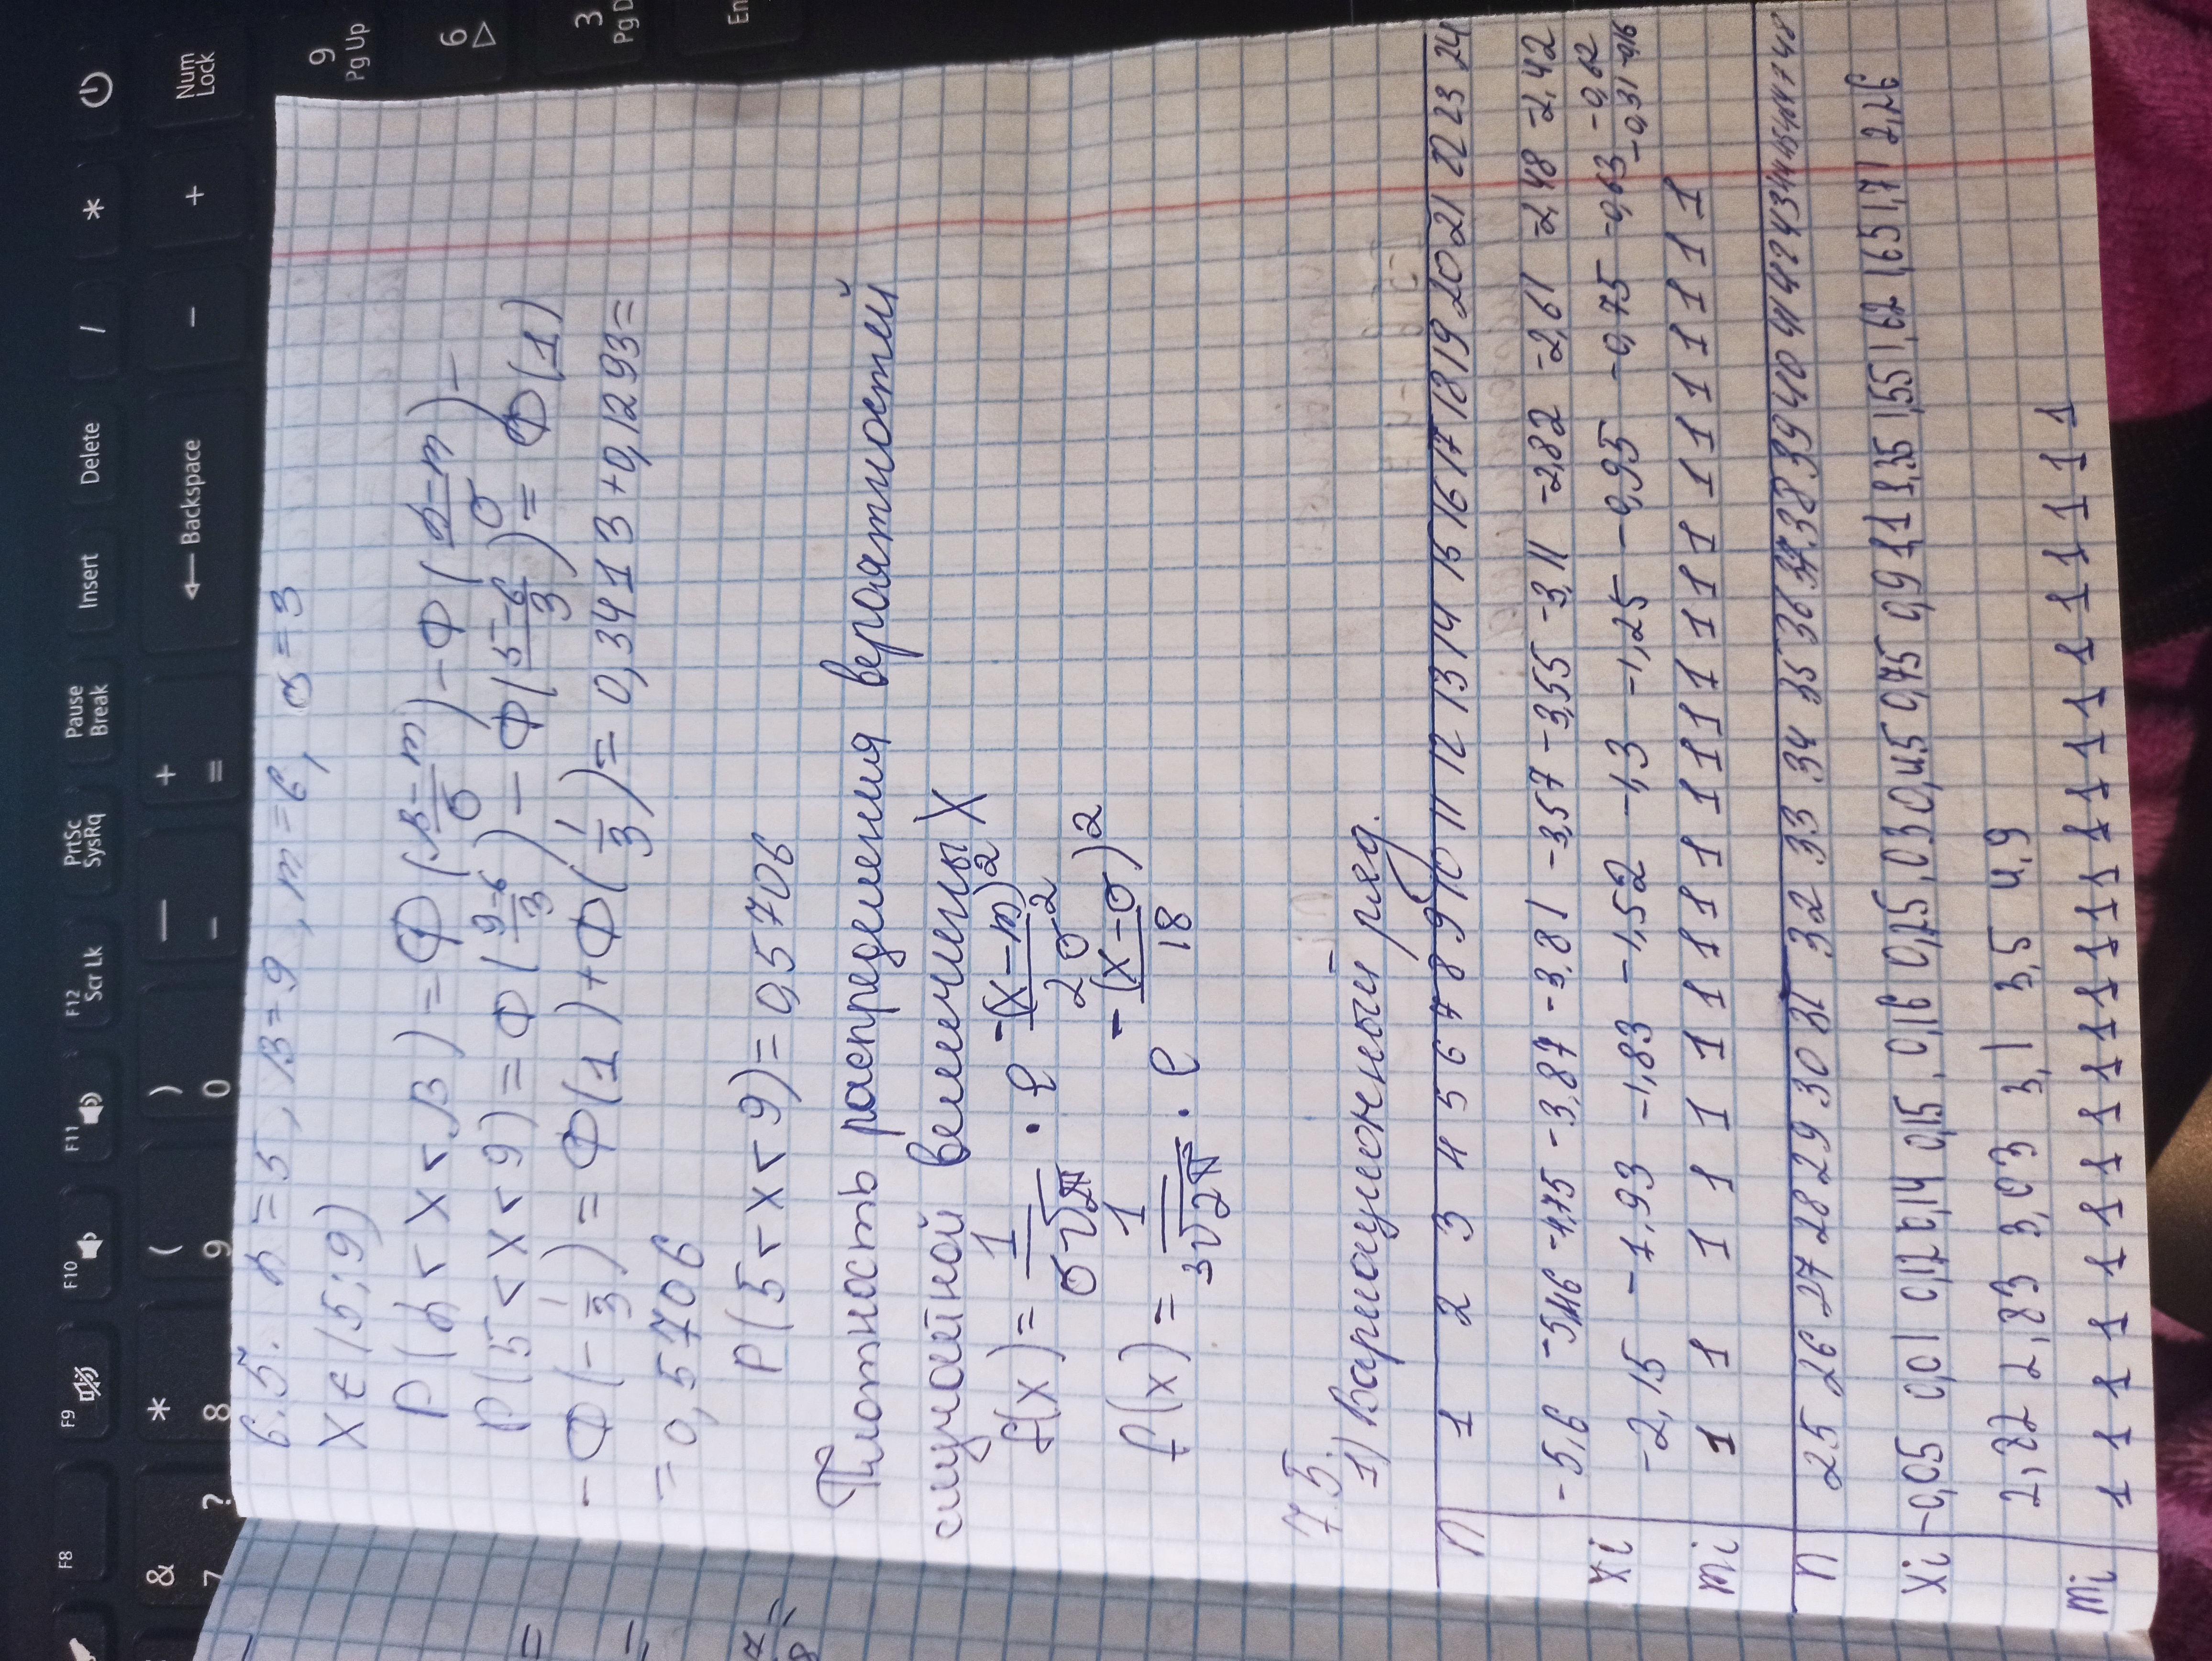 6.5. α=5, β=9, m=6, σ=3
X∈(5;9)
P(α<X<β)=Ф(β-m/σ)-Ф(α-m/σ)-
P(5<X<9)=Ф(9-6/3)-Ф(5-6/3)=Ф(1)
-Ф(-1/3)=Ф(1)+Ф(1/3)=0,3413+0,1293=
=0,5706
P(5<X<9)=0,5706
Плотность распределения вероятностей
случайной величины X
f(x)=1/σ√2π · e -(x-m)²/2σ²
f(x)=1/3√2π · e -(x-σ)²/18
7.5.
1) Вариационный ряд.
n 1 2 3 4 5 6 7 8 9 10 11 12 13 14 15 16 17 18 19 20 21 22 23 24
-5,6 -5,16 -4,75 -3,87 -3,81 -3,57 -3,55 -3,11 -2,82 -2,61 -2,48 -2,42
xi -2,15 -1,93 -1,83 -1,52 -1,3 -1,25 -0,95 -0,75 -0,63 -0,62
-0,31 -0,16
mi 1 1 1 1 1 1 1 1 1 1 1 1 1 1 1 1 1 1 1 1
n 25 26 27 28 29 30 31 32 33 34 35 36 37 38 39 40 41 42 43 44 45 46 47 48
xi -0,05 0,01 0,12 0,14 0,15 0,16 0,25 0,30 0,45 0,75 0,9 1,1 1,35 1,55 1,62 1,65 1,71 2,26
2,22 2,83 3,03 3,1 3,5 4,9
mi 1 1 1 1 1 1 1 1 1 1 1 1 1 1 1 1 1 1 1 1 1 1 1 1
F8
F9
F10
F11
F12
Scr Lk
PrtSc
SysRq
Pause
Break
Insert
Delete
/
*
&
7
?
*
8
(
9
)
0
—
-
+
=
Backspace
-
+
Num
Lock
9
Pg Up
6
3
Pg D
En